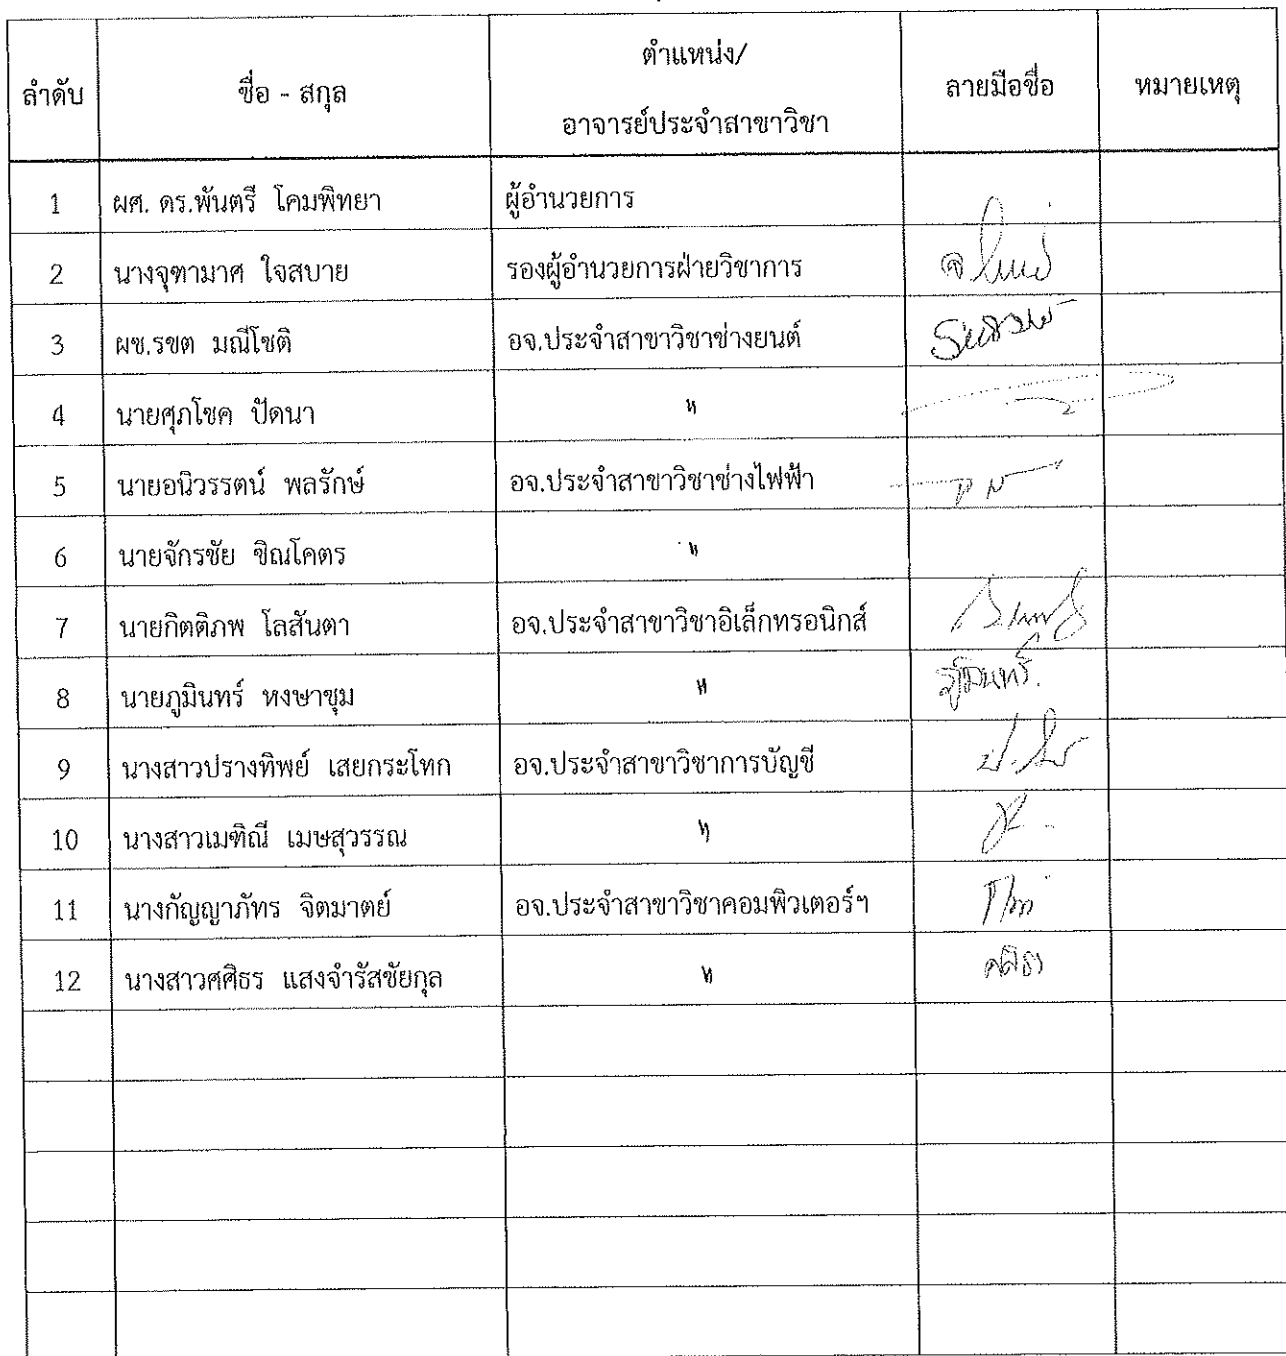 ลำดับ ชื่อ - สกุล ตำแหน่ง/ ลายมือชื่อ หมายเหตุ
อาจารย์ประจำสาขาวิชา
1 ผศ. ดร.พันตรี โคมพิทยา ผู้อำนวยการ
2 นางจุฑามาศ ใจสบาย รองผู้อำนวยการฝ่ายวิชาการ
3 ผช.รชต มณีโชติ อจ.ประจำสาขาวิชาช่างยนต์
4 นายศุภโชค ปัดนา "
5 นายอนิวรรตน์ พลรักษ์ อจ.ประจำสาขาวิชาช่างไฟฟ้า
6 นายจักรชัย ชิณโคตร "
7 นายกิตติภพ โลสันตา อจ.ประจำสาขาวิชาอิเล็กทรอนิกส์
8 นายภูมินทร์ หงษาชุม " ภูมินทร์.
9 นางสาวปรางทิพย์ เสยกระโทก อจ.ประจำสาขาวิชาการบัญชี
10 นางสาวเมฑิณี เมษสุวรรณ "
11 นางกัญญาภัทร จิตมาตย์ อจ.ประจำสาขาวิชาคอมพิวเตอร์ฯ
12 นางสาวศศิธร แสงจำรัสชัยกุล " ศศิธร